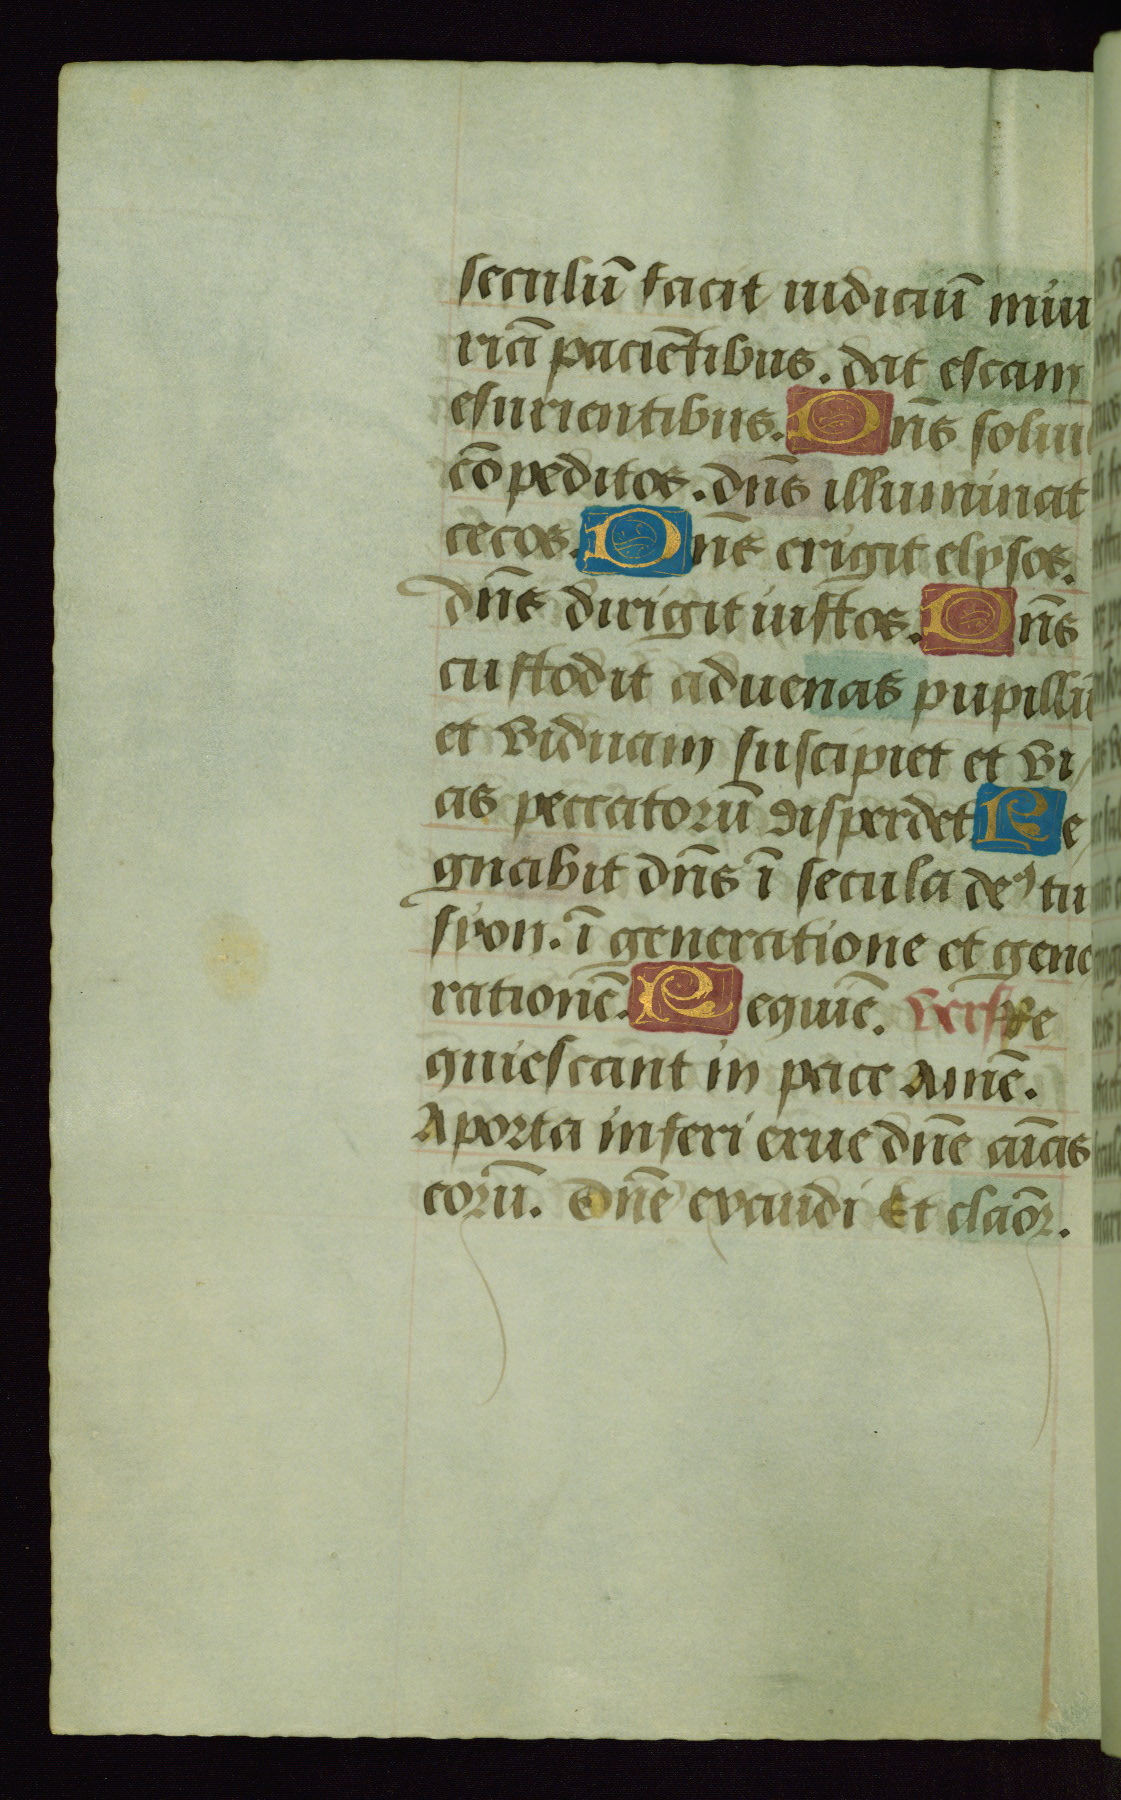 seculū facit iudiciū iniu
riā paciētibus. dat escam
esurientibus. Dn̄s soluit
cōpeditos. dn̄s illuminat
cecos. Dn̄s erigit elysos.
dn̄s dirigit iustos. Dn̄s
custodit aduenas pupillū
et viduam suscipiet et vi
as peccatorū disperdet Re
gnabit dn̄s ī secula deꝰ tu
syon. ī generatione et gene
rationē. Requiē. Vers Re
quiescant in pace Amē.
A porta inferi erue dn̄e aīas
eorū. Dn̄e exaudi Et claōr.